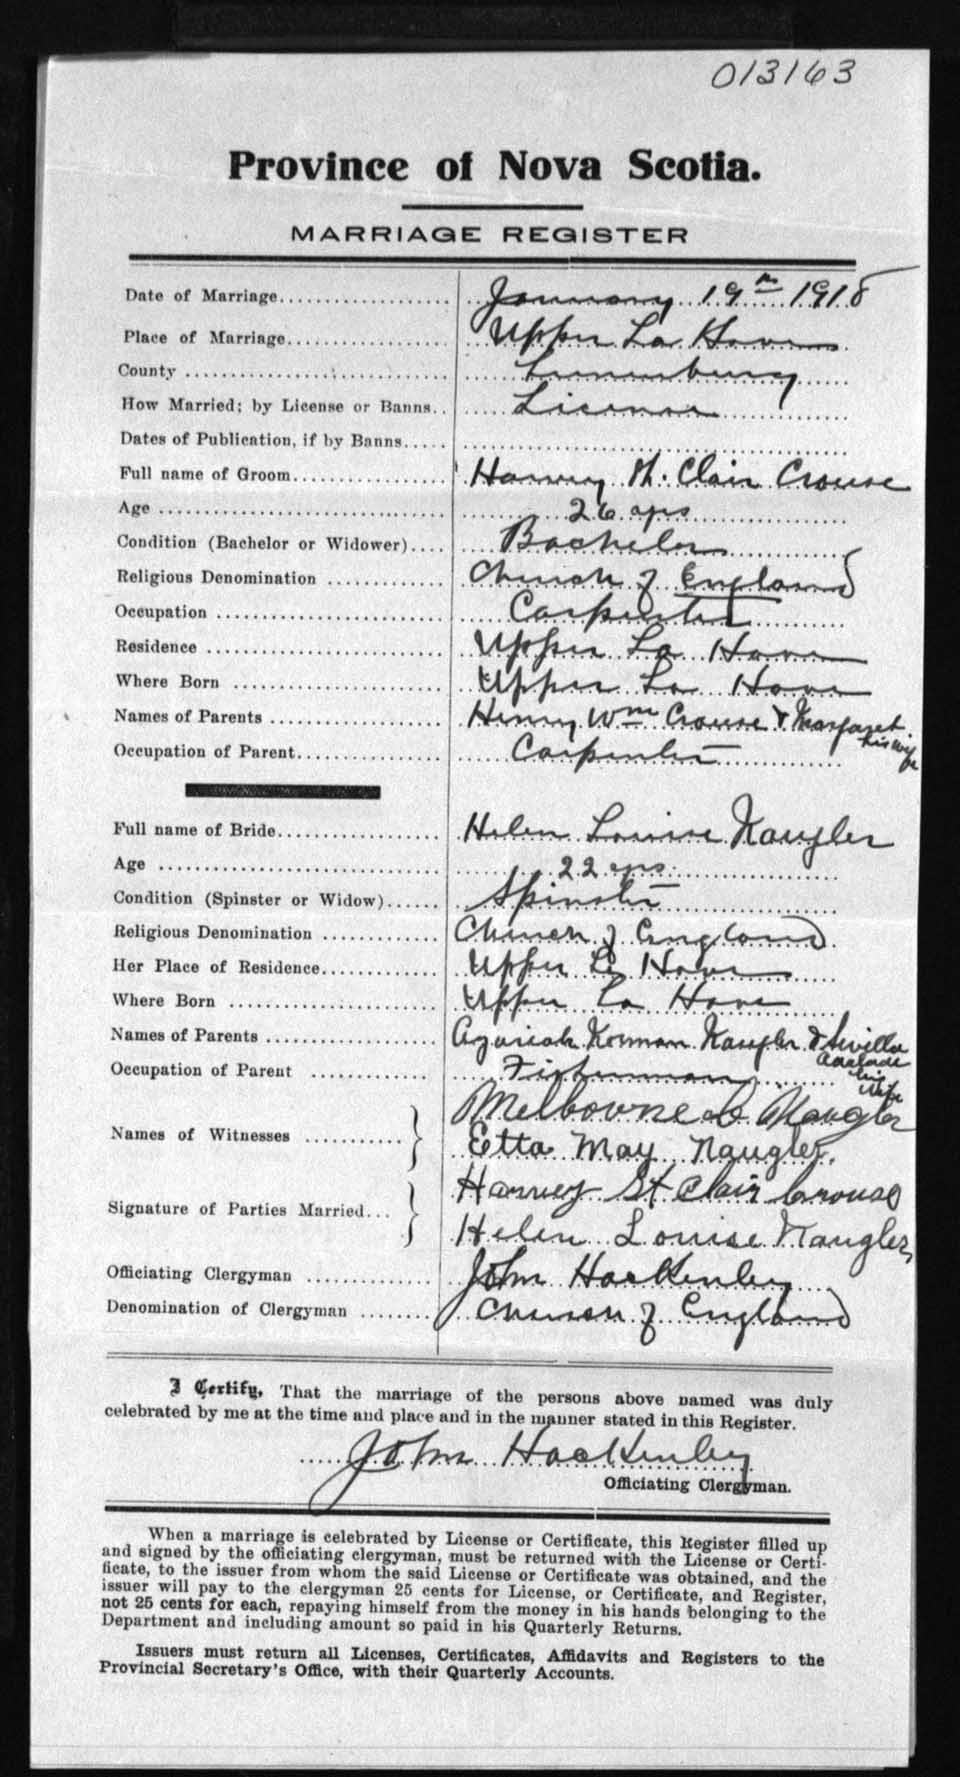 013163
Province of Nova Scotia.
MARRIAGE REGISTER
Date of Marriage January 19th 1918
Place of Marriage Upper La Have
County Lunenburg
How Married; by License or Banns License
Dates of Publication, if by Banns
Full name of Groom Harvey St. Clair Crouse
Age 26 yrs
Condition (Bachelor or Widower) Bachelor
Religious Denomination Church of England
Occupation Carpenter
Residence Upper La Have
Where Born Upper La Have
Names of Parents Henry Wm Crouse & Margaret his wife
Occupation of Parent Carpenter
Full name of Bride Helen Louise Naugler
Age 22 yrs
Condition (Spinster or Widow) Spinster
Religious Denomination Church of England
Her Place of Residence Upper La Have
Where Born Upper La Have
Names of Parents Azariah Norman Naugler & Sivilla his wife
Occupation of Parent Fisherman
Names of Witnesses Melbourne Naugler
Etta May Naugler.
Signature of Parties Married Harvey St Clair Crouse
Helen Louise Naugler
Officiating Clergyman John Hackenley
Denomination of Clergyman Church of England
I Certify, That the marriage of the persons above named was duly
celebrated by me at the time and place and in the manner stated in this Register.
John Hackenley
Officiating Clergyman.
When a marriage is celebrated by License or Certificate, this Register filled up
and signed by the officiating clergyman, must be returned with the License or Certi-
ficate, to the issuer from whom the said License or Certificate was obtained, and the
issuer will pay to the clergyman 25 cents for License, or Certificate, and Register,
not 25 cents for each, repaying himself from the money in his hands belonging to the
Department and including amount so paid in his Quarterly Returns.
Issuers must return all Licenses, Certificates, Affidavits and Registers to the
Provincial Secretary's Office, with their Quarterly Accounts.